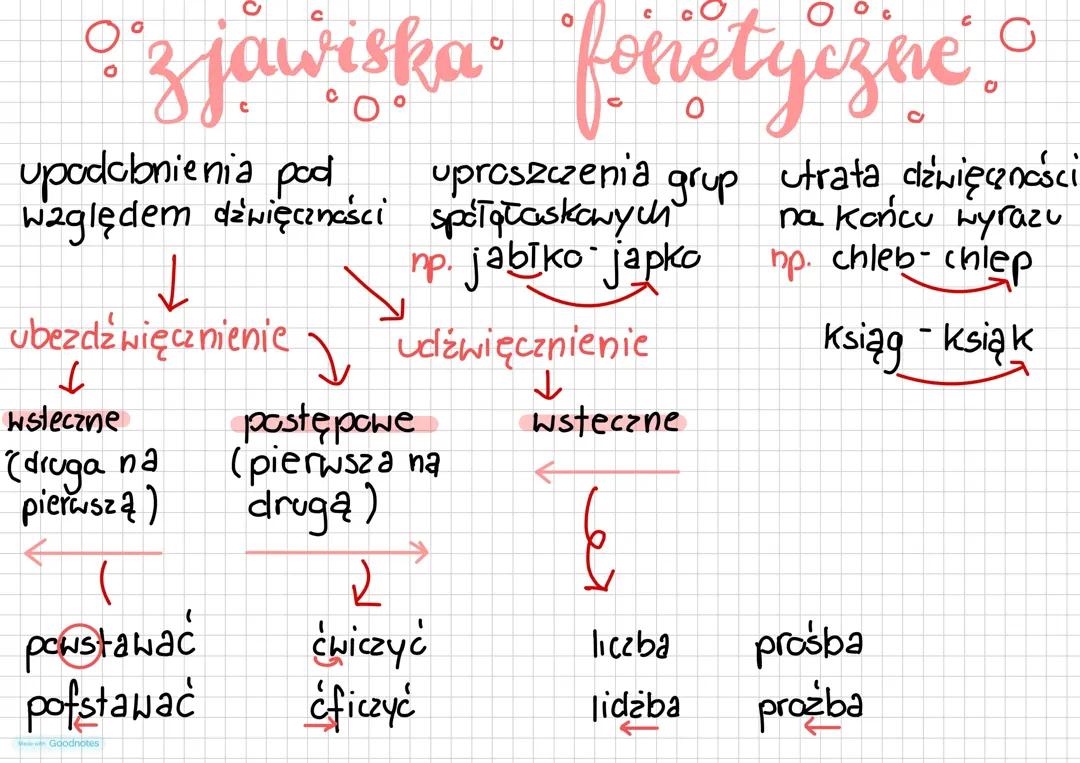 zjawiska fonetyczne
upodobnienia pod
względem dźwięczności
uproszczenia grup
spółgłoskowych
np. jabłko - japko
utrata dźwięczności
na końcu wyrazu
np. chleb - chlep
ksiąg - ksiąk
ubezdźwięcznienie
udźwięcznienie
wsteczne
(druga na
pierwszą)
postępowe
(pierwsza na
drugą)
wsteczne
powstawać
pofstawać
ćwiczyć
ćficzyć
liczba
lidżba
prośba
proźba
Made with Goodnotes